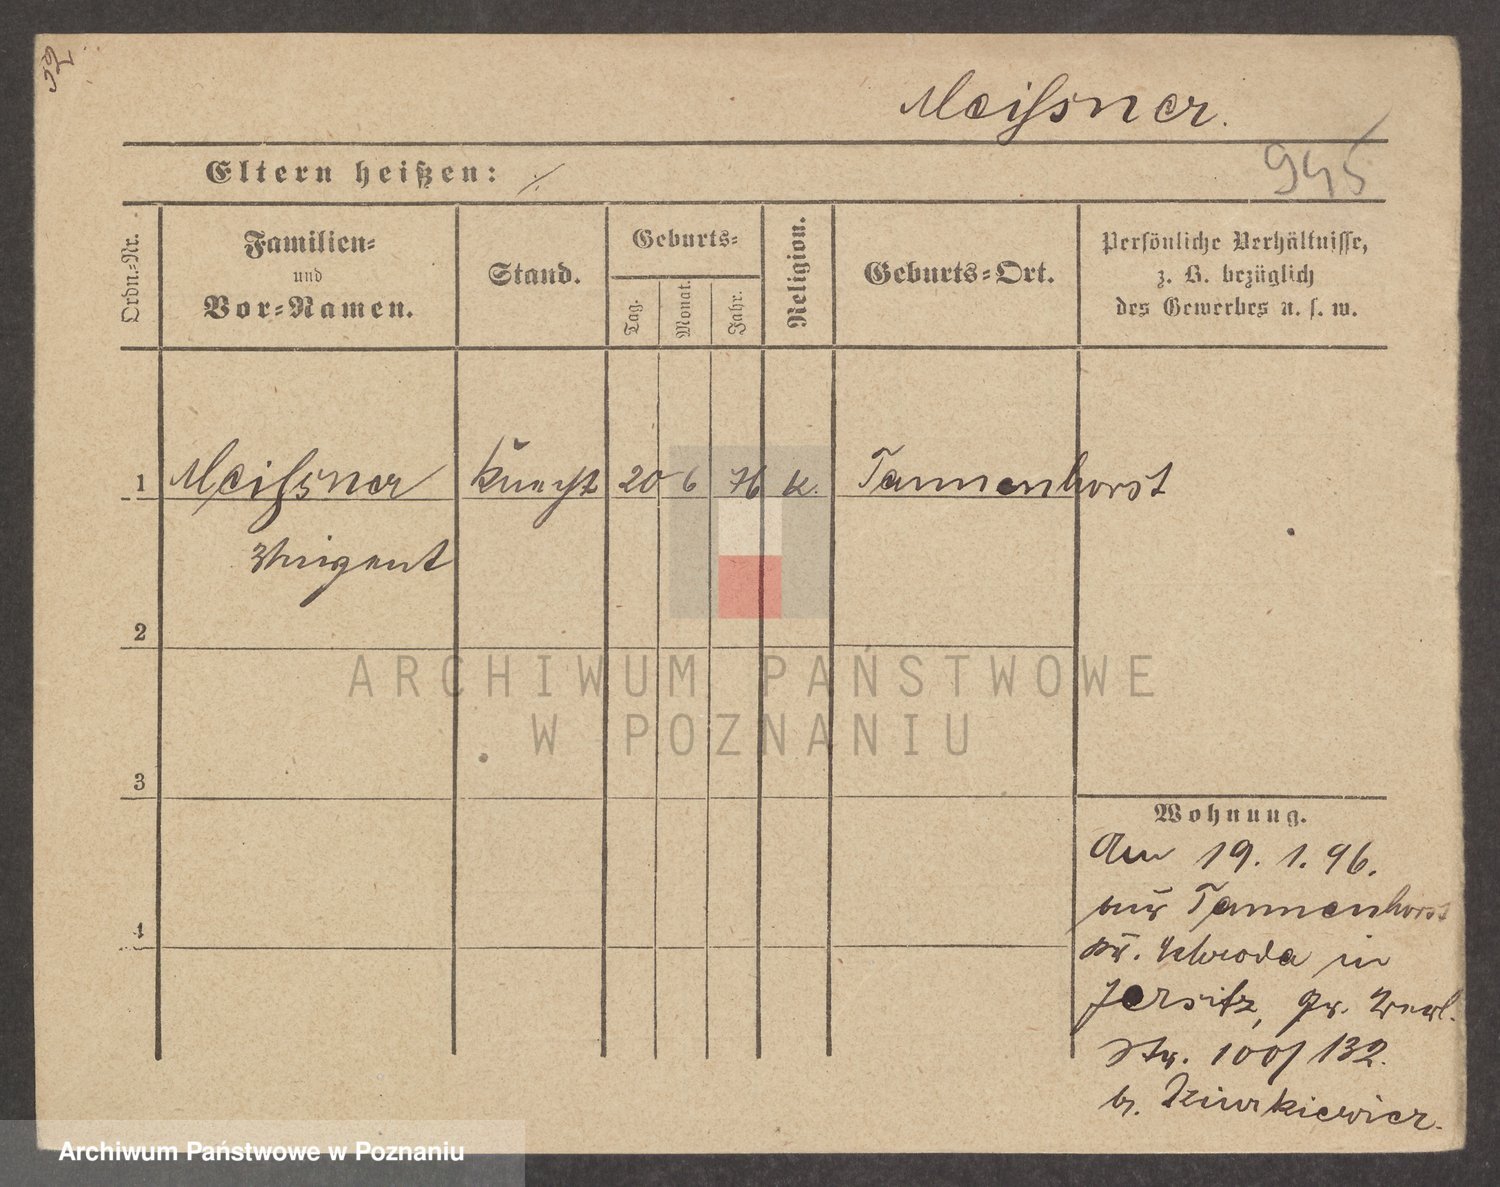 52
Meißner.
945
Eltern heißen: ./.
Ordn.-Nr.
Familien-
und
Vor-Namen.
Stand.
Geburts-
Tag.
Monat.
Jahr.
Religion.
Geburts-Ort.
Persönliche Verhältnisse,
z. B. bezüglich
des Gewerbes u. s. w.
1 Meißner Knecht 20 6 76 k. Tannenhorst
Vinzent
2
3
4
Wohnung.
Am 19. 1. 96.
aus Tannenhorst
Kr. Schroda in
Jersitz, Gr. Berl.
Str. 100/132.
b.
ARCHIWUM PAŃSTWOWE
W POZNANIU
Archiwum Państwowe w Poznaniu